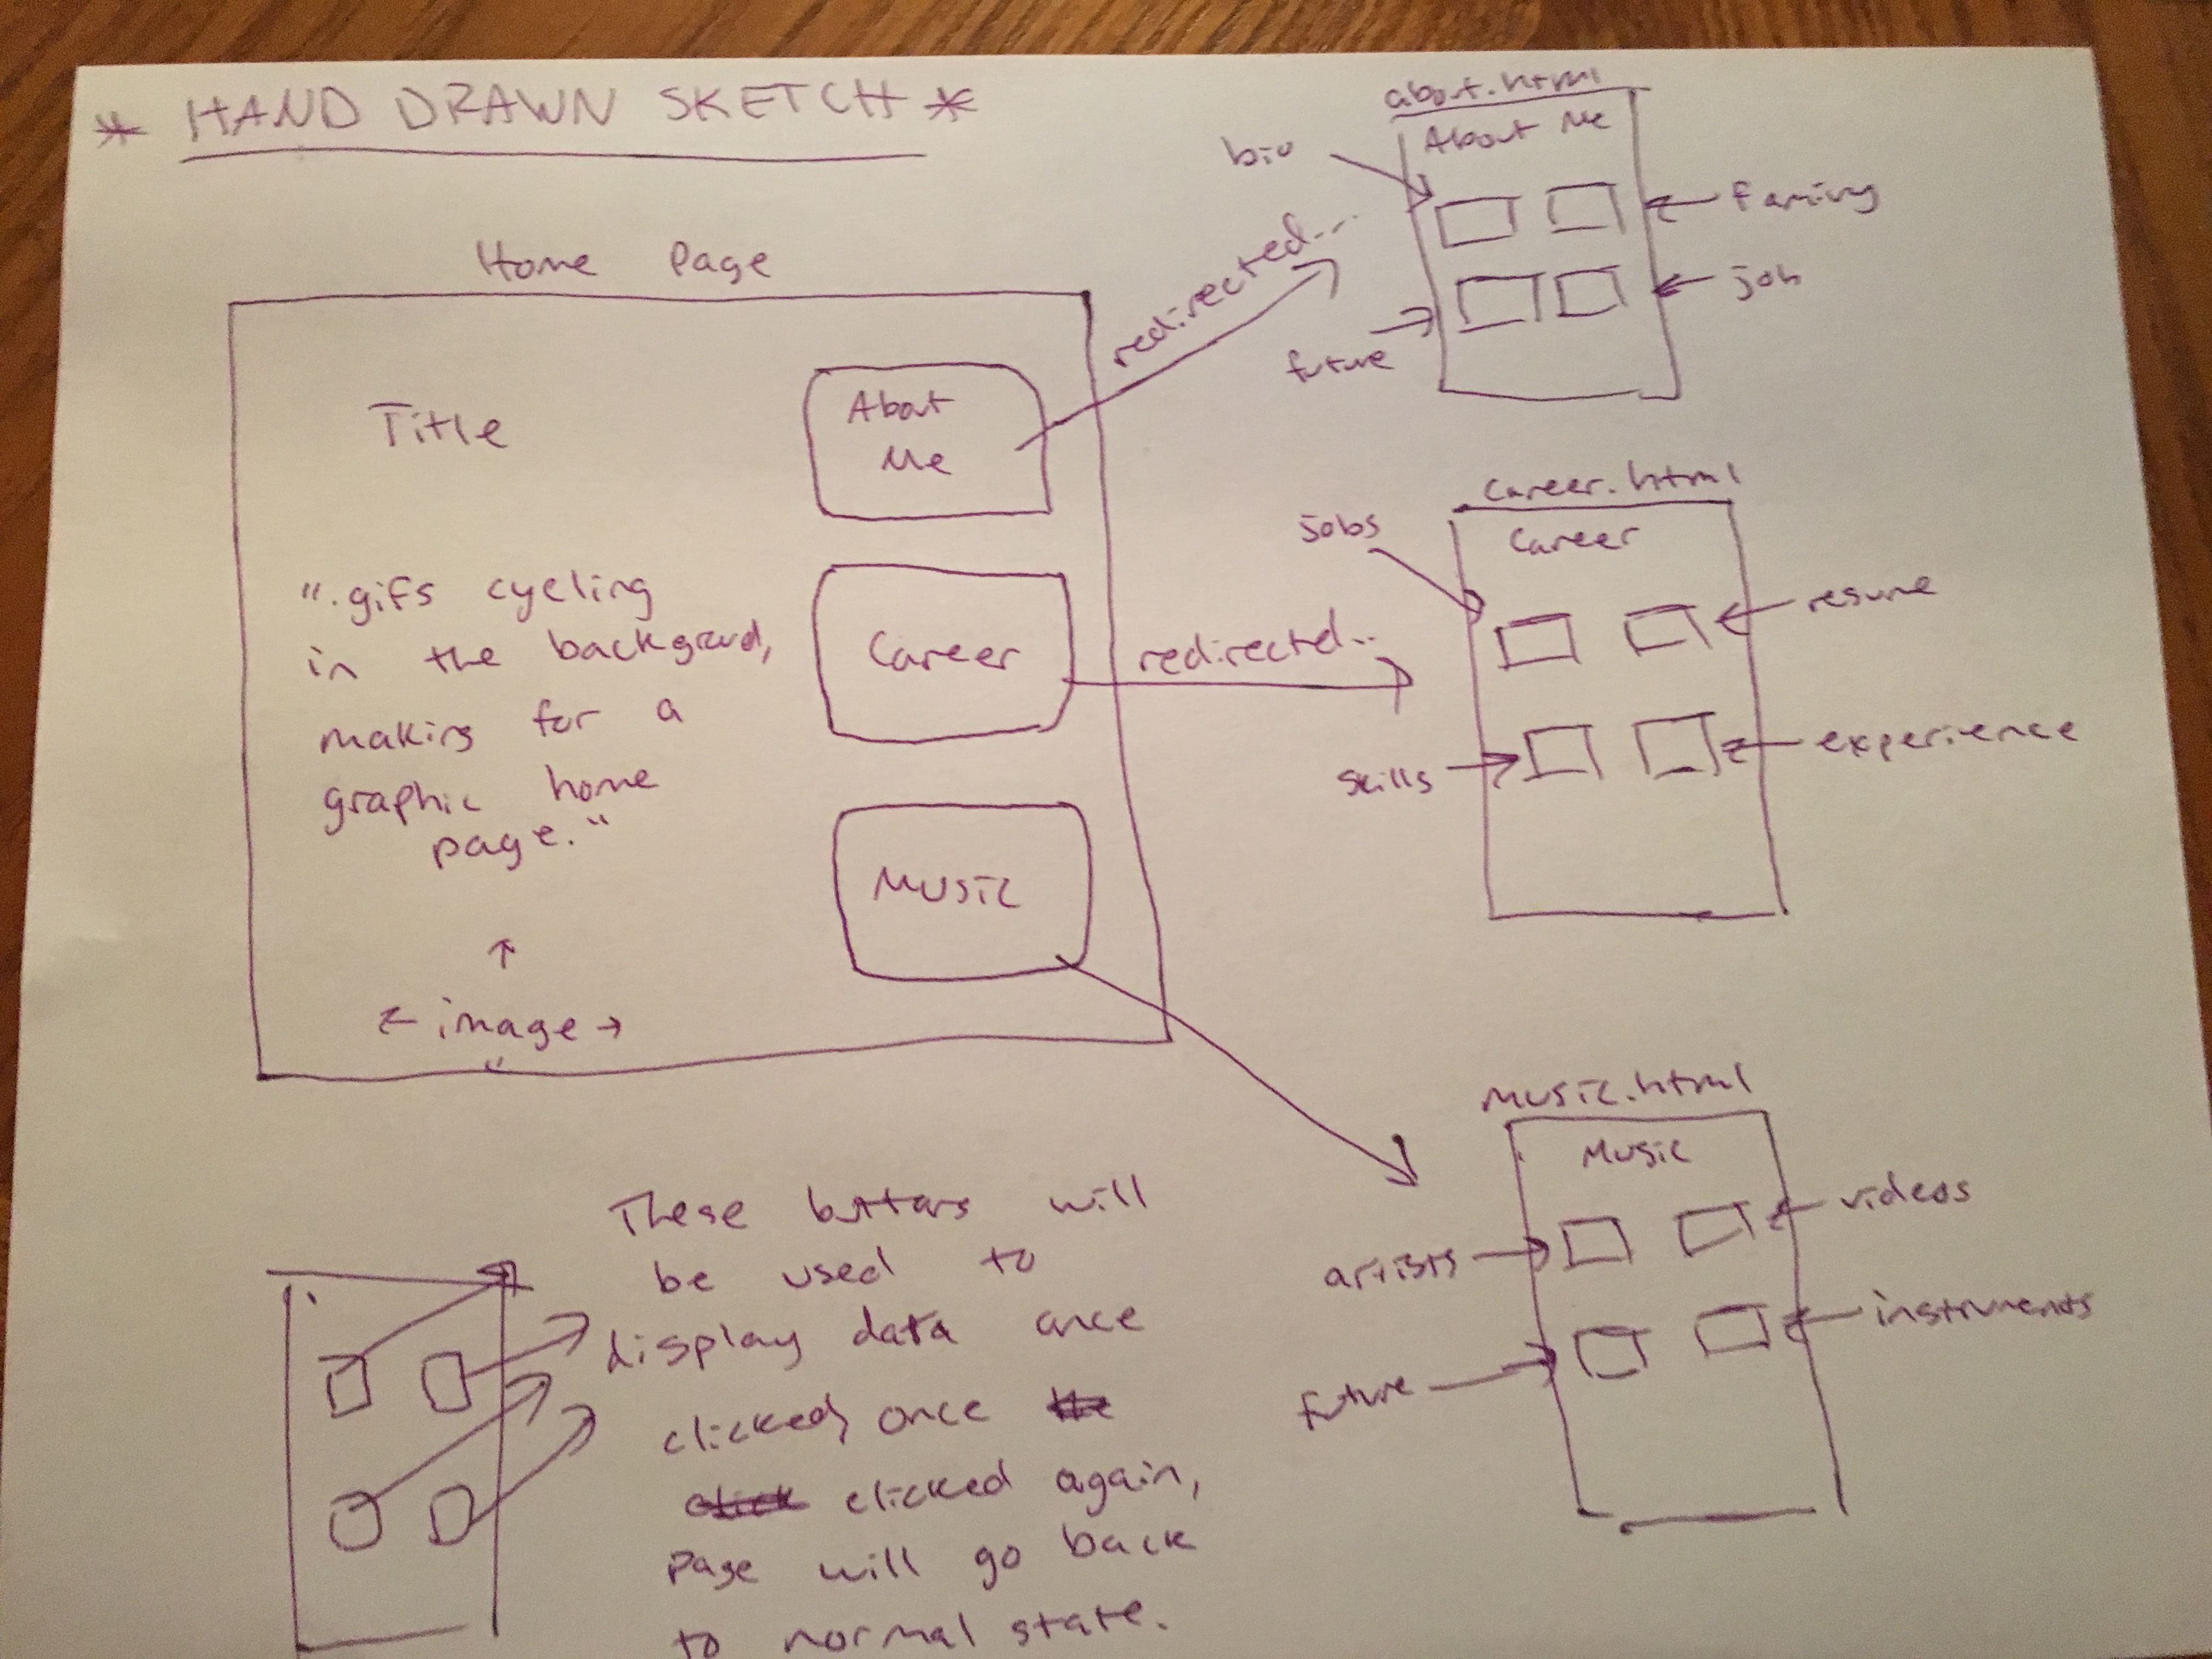 * HAND DRAWN SKETCH *
Home Page
Title
".gifs cycling
in the backgroud,
making for a
graphic home
page."
↑
← image →
About
Me
Career
Music
redirected...
redirected...
about.html
About Me
bio
future
family
job
Career.html
Career
jobs
skills
resume
experience
Music.html
Music
artists
future
videos
instruments
These buttons will
be used to
display data once
clicked, once
clicked again,
page will go back
to normal state.